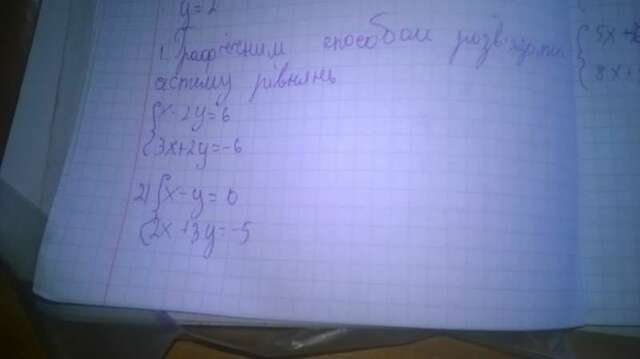 y = 2
1. Графічним способом розв'язати
систему рівнянь
{x - 2y = 6
{3x + 2y = -6
2) {x - y = 0
{2x + 3y = -5
{5x +
{8x